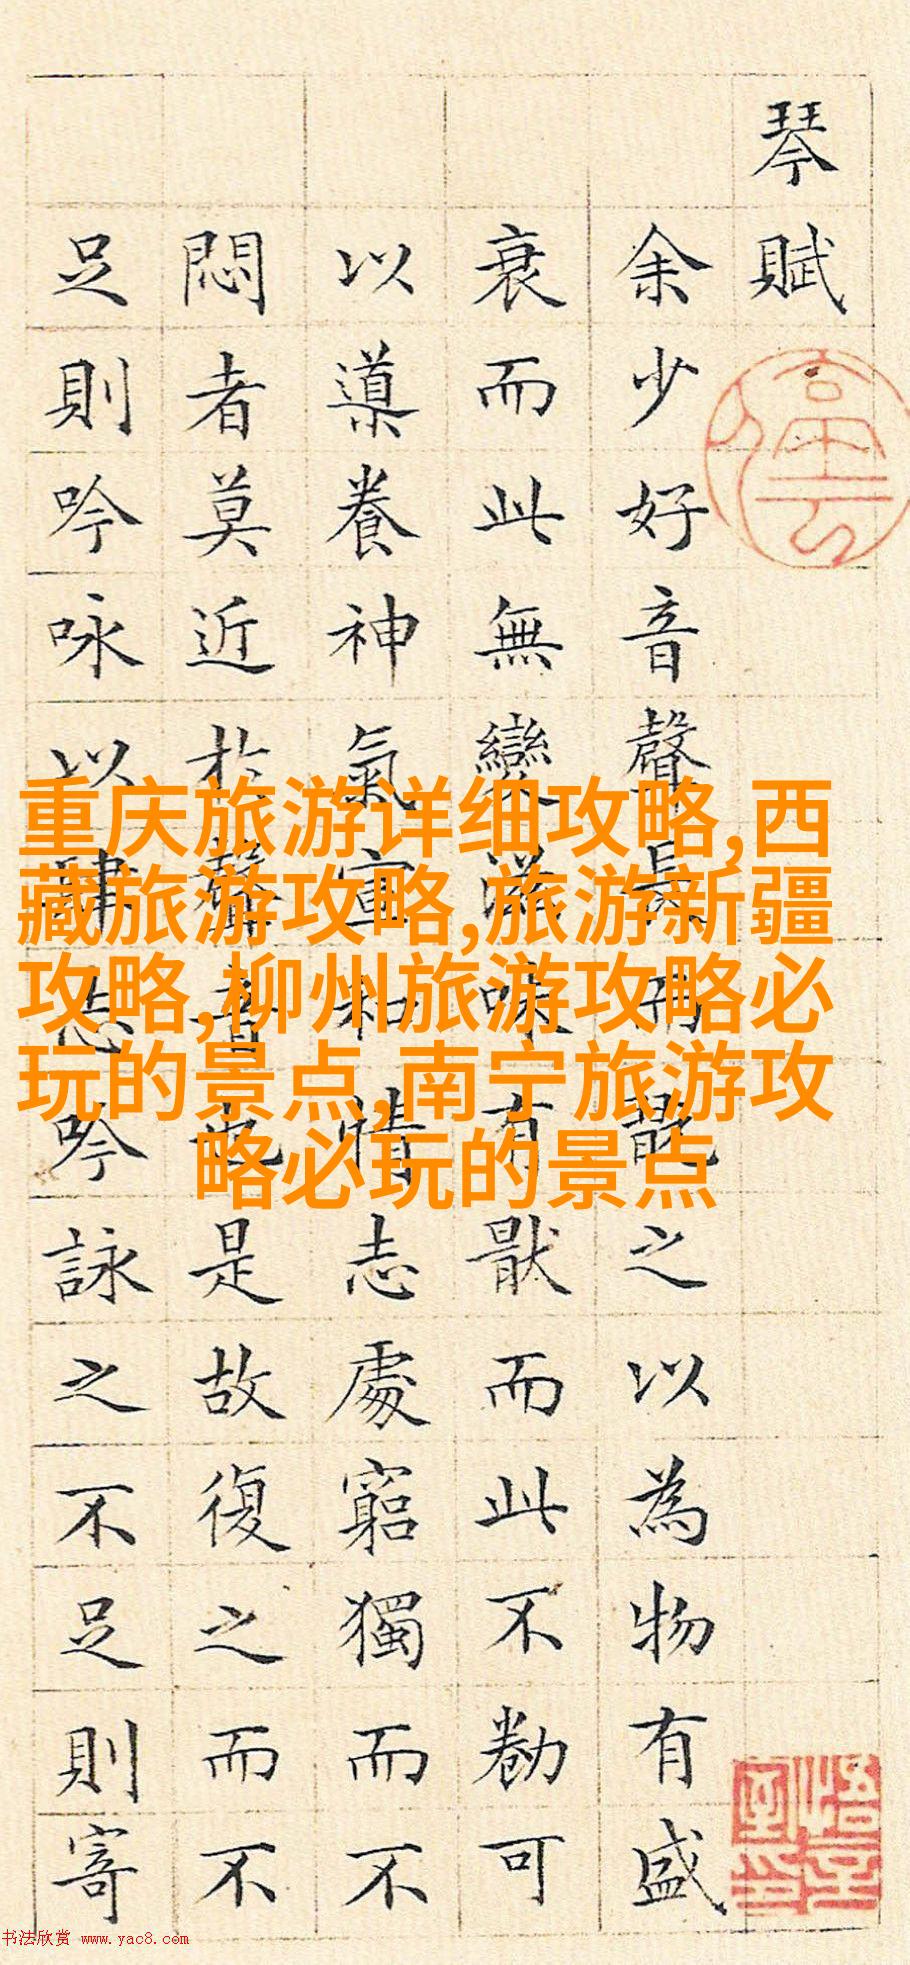 琴賦
余少好音聲長而翫之以為物有盛
衰而此無變滋味有猒而此不勌可
以導養神氣宣和情志處窮獨而不
悶者莫近於聲音也是故復之而不
足則吟咏以肆志吟詠之不足則寄
重庆旅游详细攻略,西
藏旅游攻略,旅游新疆
攻略,柳州旅游攻略必
玩的景点,南宁旅游攻
略必玩的景点
书法欣赏 www.yac8.com